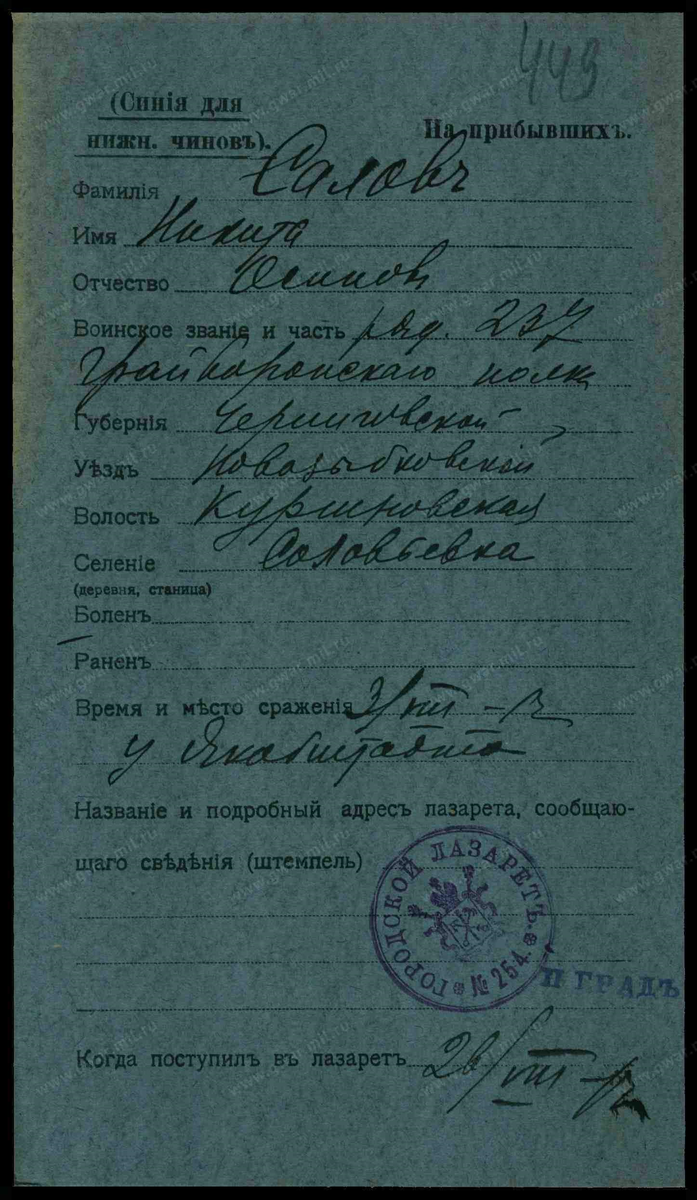 443
(Синія для
нижн. чиновъ).
На прибывшихъ.
Фамилія Саловъ
Имя Никита
Отчество Осиповъ
Воинское званіе и часть ряд. 237
Грайворонскаго полка
Губернія Черниговской
Уѣздъ Новозыбковской
Волость
Селеніе Соловьевка
(деревня, станица)
Боленъ
Раненъ
Время и мѣсто сраженія
у Якобштадта
Названіе и подробный адресъ лазарета, сообщаю-
щаго свѣдѣнія (штемпель)
ГОРОДСКОЙ ЛАЗАРЕТЪ.
№ 254
П ГРАДЪ
Когда поступилъ въ лазаретъ 26/VIII
www.gwar.mil.ru